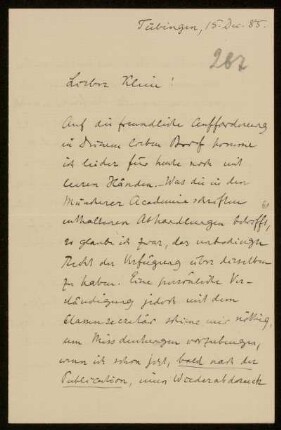 Tübingen, 15. Dec. 85.
287
Lieber Klein!
Auf die freundliche Aufforderung
in Deinem lieben Brief komme
ich leider für heute noch mit
leeren Händen. Was die in den
Münchener Academieschriften
enthaltenen Abhandlungen betrifft,
so glaube ich zwar, das unbedingte
Recht der Verfügung über dieselben
zu haben. Eine persönliche Ver-
ständigung jedoch mit dem
Classensecretär schiene mir nöthig,
um Missdeutungen vorzubeugen,
wenn ich schon jetzt, bald nach der
Publication, einen Wiederabdruck